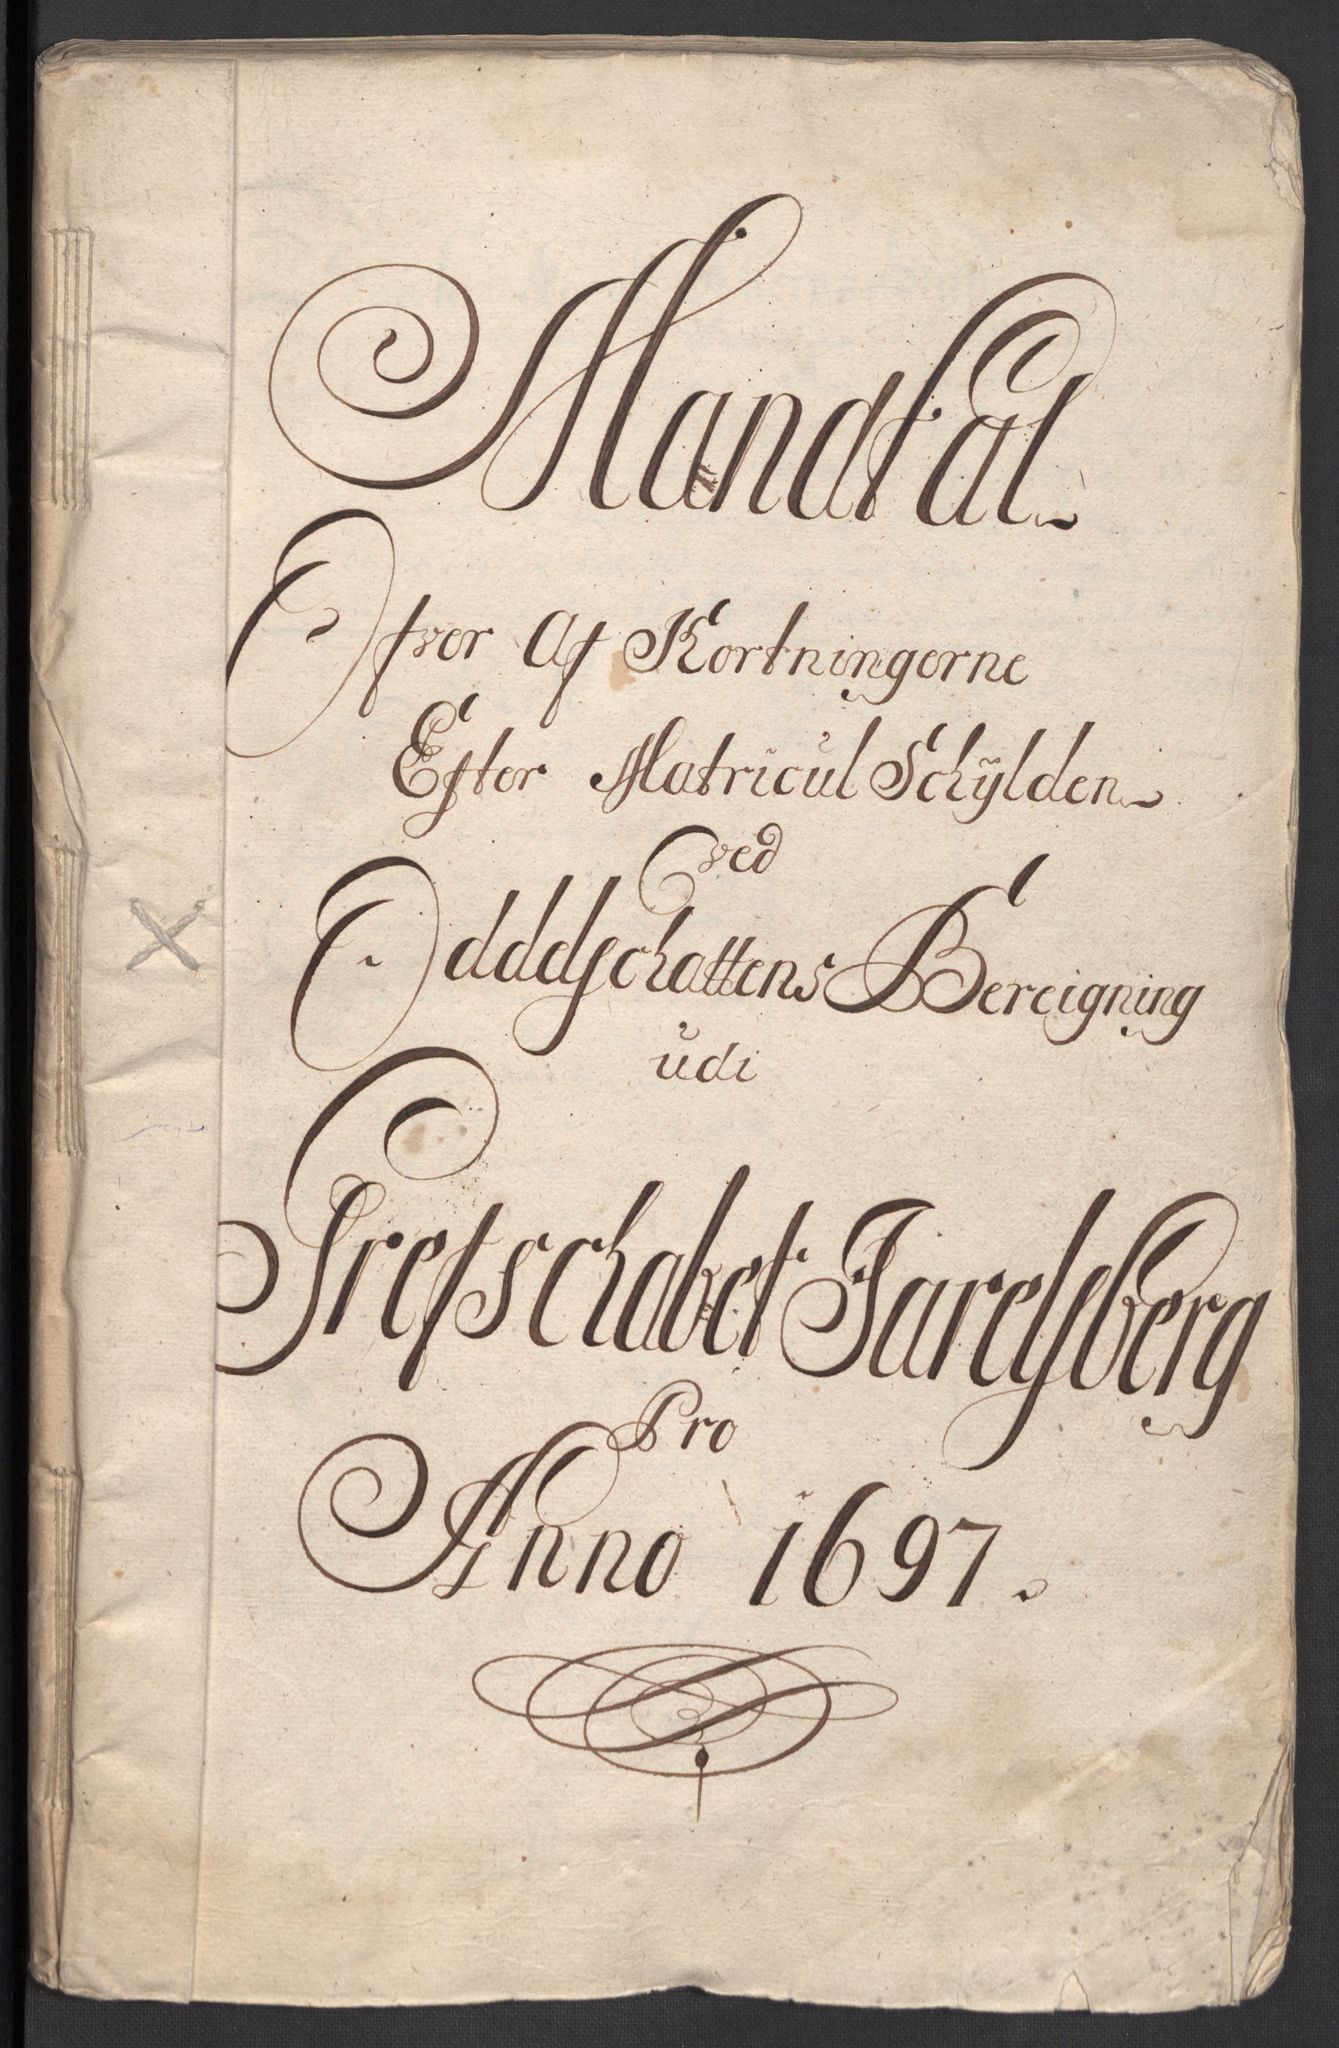 Mandtal
Ofver Af Kortningerne
Efter Matricul Schÿlden
ved
Odddschattens Bereigning
udi
Grefschabet Jarelsberg
Pro
Anno 1697.